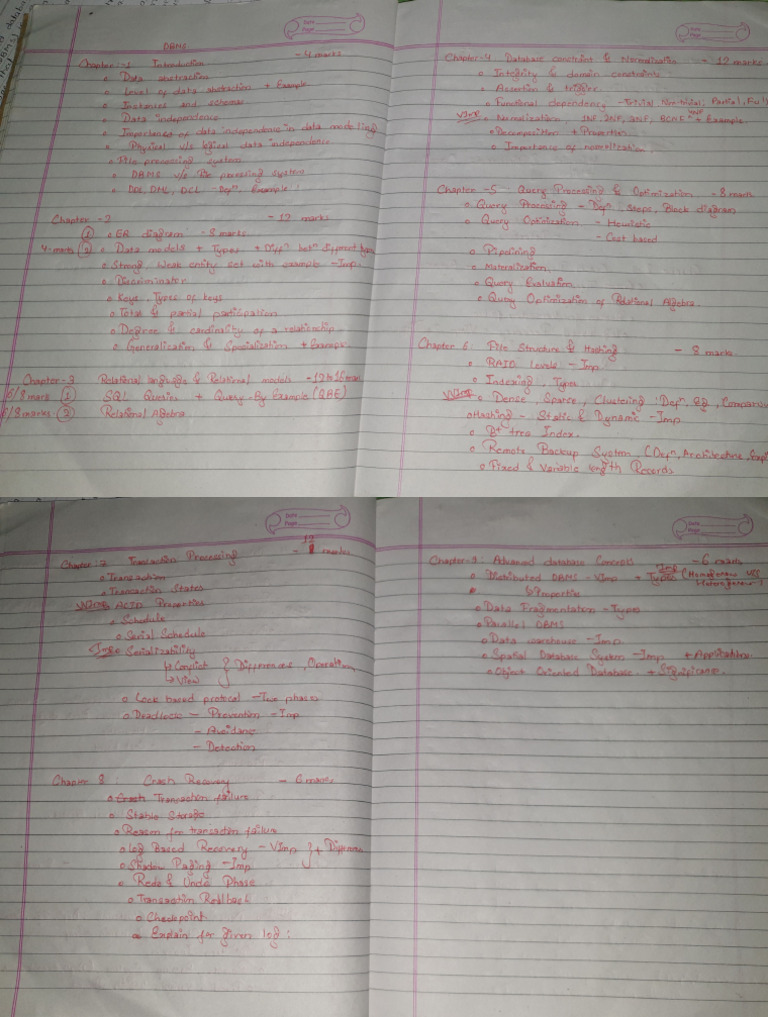 Date
Page
DBMS
Chapter:-1 Introduction - 4 marks
Data abstraction
Level of data abstraction + Example
Instances and schemas
Data independence
Importance of data independence in data modelling
Physical v/s logical data independence
File processing system
DBMS v/s file processing system
DDL, DML, DCL - Defn, Example!
Chapter -2 - 12 marks
① ER diagram - 8 marks
4-marks ② Data models + Types + Diffn betn different types
Strong, Weak entity set with example - Imp.
Discriminator
Keys, Types of keys
Total & partial participation
Degree & cardinality of a relationship
Generalization & Specialization + Example.
Chapter -3 Relational language & Relational models - 12 to 16 mark
6/8 mark ① SQL Queries + Query-By Example (QBE)
6/8 marks ② Relational Algebra
Date
Page
Chapter-4 Database constraint & Normalization - 12 marks
Integrity & domain constraints
Assertion & trigger
Functional dependency - Trivial, Non-trivial, Partial, Full
VImp Normalization, 1NF, 2NF, 3NF, BCNF, 4NF + Example.
Decomposition + Properties
Importance of normalization.
Chapter -5 Query Processing & Optimization - 8 marks
Query Processing - Defn, Steps, Block diagram
Query Optimization - Heuristic
- Cost based
Pipelining
Materialization
Query Evaluation
Query Optimization of Relational Algebra.
Chapter 6: File Structure & Hashing - 8 marks.
RAID Levels - Imp
Indexing, Types
VVImp Dense, Sparse, Clustering: Defn, Eg, Comparison
Hashing - Static & Dynamic - Imp
B+ tree Index.
Remote Backup System, (Defn, Architecture,
Fixed & Variable length Records
Date
Page
Chapter:7 Transaction Processing - 12 marks
Transaction
Transaction States
VVImp ACID Properties
Schedule
Serial Schedule
Imp Serializability
↳ Conflict } Differences, Operation,
↳ View
Lock based protocol - Two phase
Deadlock - Prevention - Imp
- Avoidance
- Detection
Chapter 8: Crash Recovery - 6 marks
Transaction failure
Stable Storage
Reason for transaction failure
Log Based Recovery - VImp } + Difference
Shadow Paging - Imp
Redo & Undo Phase
Transaction Rollback
Checkpoint
Explain for given log:
Date
Page
Chapter-9: Advanced database Concepts - 6 marks
Distributed DBMS - VImp + Types Imp (Homogeneous v/s Heterogeneous)
Properties
Data Fragmentation - Types
Parallel DBMS
Data warehouse - Imp
Spatial Database System - Imp + Applications
Object Oriented Database + Significance.